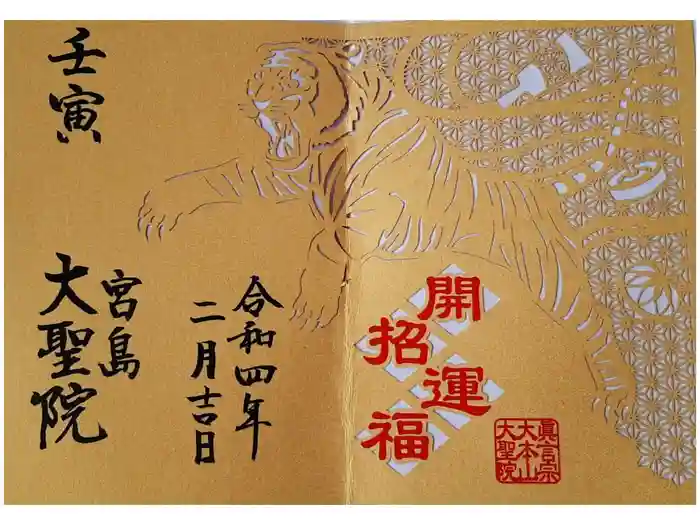 開運
招福
眞言宗
大本山
大聖院
令和四年
二月吉日
宮島
大聖院
壬寅